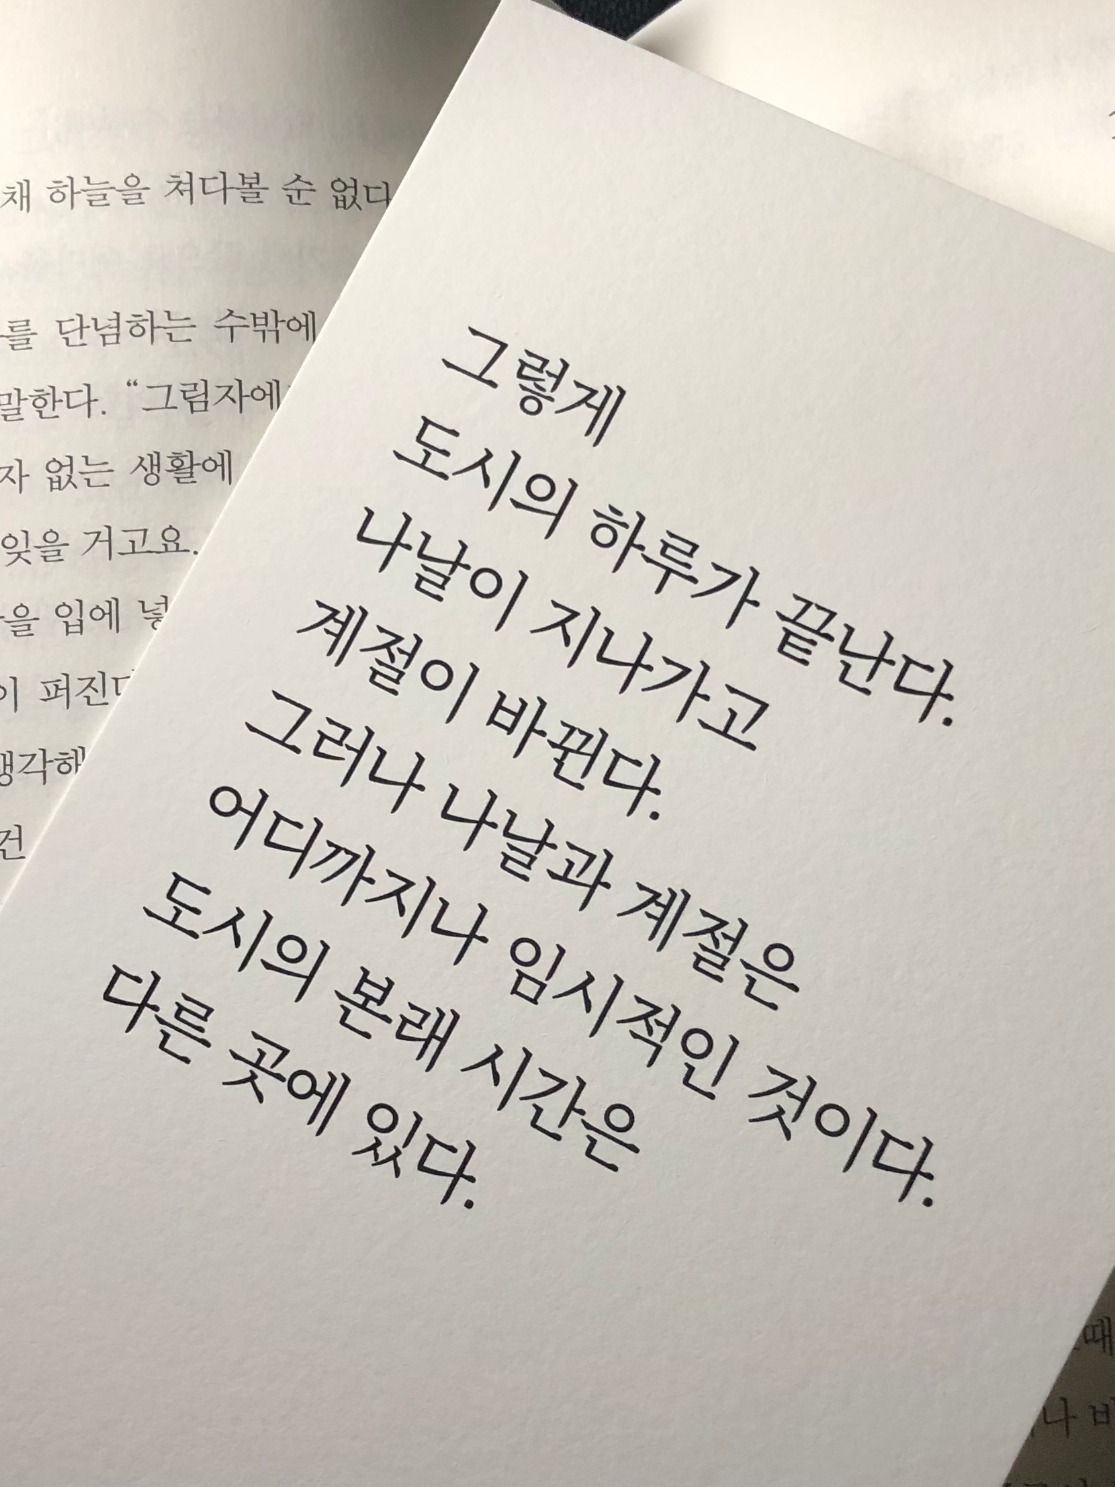 채 하늘을 쳐다볼 순 없다
를 단념하는 수밖에
말한다. “그림자에
자 없는 생활에
잊을 거고요.
을 입에 넣
이 퍼진다
생각해
건
그렇게
도시의 하루가 끝난다.
나날이 지나가고
계절이 바뀐다.
그러나 나날과 계절은
어디까지나 임시적인 것이다.
도시의 본래 시간은
다른 곳에 있다.
때
나 바